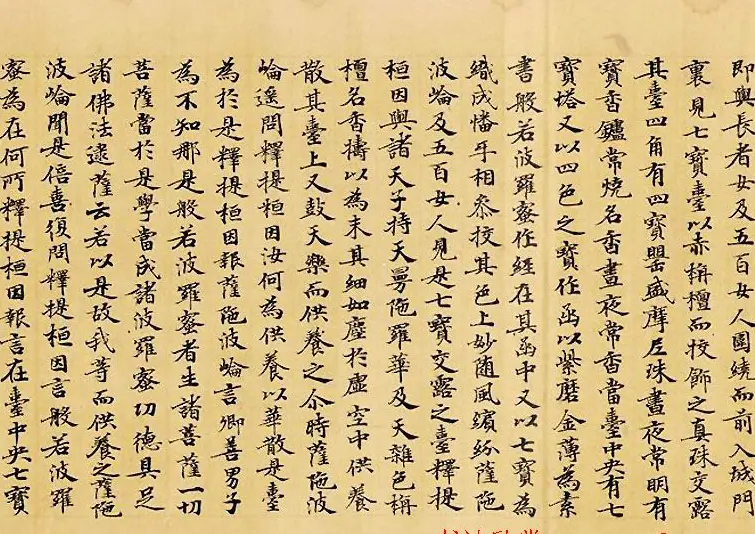 即與長者女及五百女人圍繞而前入城門
裏見七寶臺以赤栴檀而挍飾之真珠交露
其臺四角有四寶甖盛摩尼珠晝夜常明有
寶香鑪常燒名香晝夜常香當臺中央有七
寶塔又以四色之寶作函以紫磨金薄為素
書般若波羅蜜作經在其函中又以七寶為
織成幡𠦑相叅挍其色上妙隨風繽紛薩陁
波崘及五百女人見是七寶交露之臺釋提
桓因與諸天子持天曼陁羅華及天雜色栴
檀名香擣以為末其細如塵於虛空中供養
散其臺上又鼓天樂而供養之尒時薩陁波
崘遙問釋提桓因汝何為供養以華散是臺
為於是釋提桓因報薩陁波崘言卿善男子
為不知那是般若波羅蜜者生諸菩薩一切
菩薩當於是學當成諸波羅蜜功德具足
諸佛法逮薩云若以是故我等而供養之薩陁
波崘聞是倍喜復問釋提桓因言般若波羅
蜜為在何所釋提桓因報言在臺中央七寶